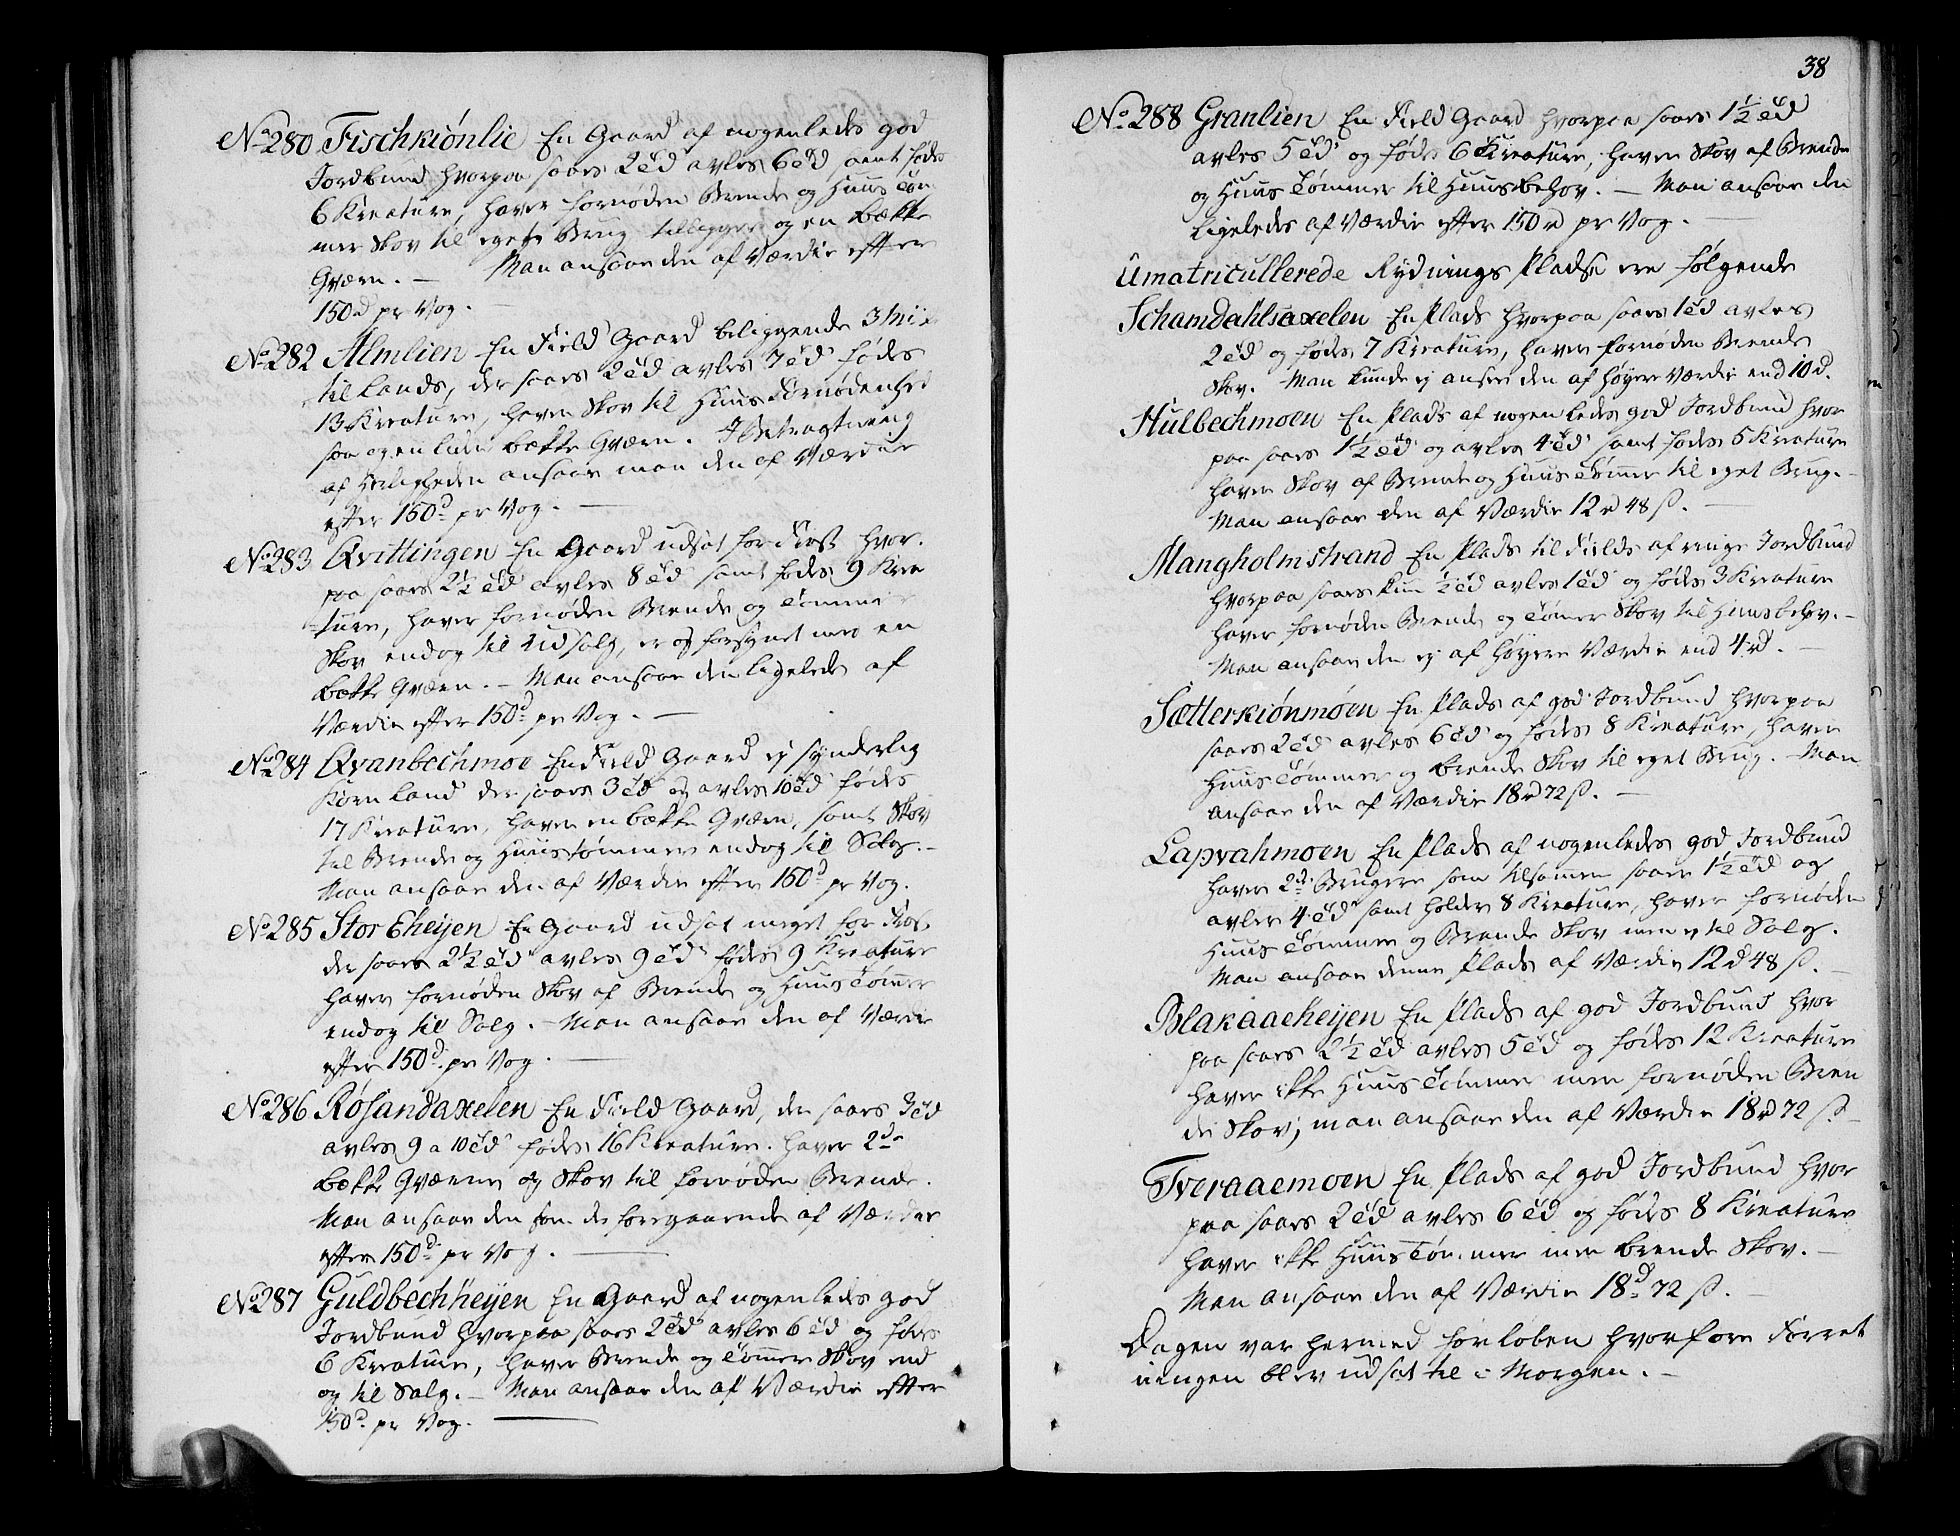 No 280 Fischkiónlie En Gaard af nogenledes god
Jordbund hvorpaa saaes 2 Td avles 6 Td samt födes
6 Kreature, haver fornøden Brende og Huus Tøm
mer Skov til egets Brug tilligger og en Bække
Qværn. — Man ansaae den af Værdie efter
150 d pr Vog. —
No 282 Almlien En Field Gaard beliggende 3 Mii
til Lands, der saaes 2 Td avles 7 Td födes
13 Kreature, haver Skov til Huus Fornødenhed
saa og en liden Bække Qværn. I Betragtning
af Herligheden ansaae man den af Værdie
efter 150 d pr Vog. —
No 283 Qvittingen En Gaard udsat for Frost hvor-
paa saaes 2½ Td avles 8 Td samt födes 9 Krea
ture, haver fornøden Brende og Tømmer
Skov endog til Udsalg, er og forsynet med en
Bække Qværn. — Man ansaae den ligeledes af
Værdie efter 150 d pr Vog. —
No 284 Qvanbechmoe En Field Gaard ej synderlig
Korn Land der saaes 3 Td og avles 10 Td födes
17 Kreature, haver en Bække Qværn, samt Skov
til Brende og Huustømmer endog til Salg. —
Man ansaae den af Værdie efter 150 d pr Vog.
No 285 Stor Eheijen En Gaard udsat meget for Frost
der saaes 2½ Td avles 9 Td födes 9 Kreature
haver fornøden Skov af Brende og Huus Tømmer
endog til Salg. — Man ansaae den af Værdie
efter 150 d pr Vog. —
No 286 Rósandaxelen En Field Gaard, der saaes 3 Td
avles 9 a 10 Td födes 16 Kreature. haver 2de
Bække Qværne og Skov til fornøden Brende.
Man ansaae den som de foregaaende af Værdie
efter 150 d pr Vog. —
No 287 Guldbechheijen En Gaard af nogenledes god
Jordbund hvorpaa saaes 2 Td avles 6 Td og födes
6 Kreature, haver Brende og Tømmer Skov end
og til Salg. — Man ansaae den af Værdie efter
150 d pr Vog. —
38
No 288 Granlien En Field Gaard hvorpaa saaes 1½ Td
avles 5 Td og födes 6 Kreature, haver Skov af Brende
og Huus Tømmer til Huusbehov. — Man ansaae den
ligeledes af Værdie efter 150 d pr Vog. —
Umatricullerede Rydnings Pladse ere følgende
Schamdahlsaxelen En Plads hvorpaa saaes 1 Td avles
2 Td og födes 7 Kreature, haver fornøden Brende
Skov. Man kunde ej ansee den af høyere Værdie end 10 d.
Hulbechmoen En Plads af nogenledes god Jordbund hvor
paa saaes 1½ Td og avles 4 Td samt födes 5 Kreature
haver Skov af Brende og Huus Tømmer til eget Brug. —
Man ansaae den af Værdie 12 d 48 ß. —
Mangholmstrand En Plads til Fields af ringe Jordbund
hvorpaa saaes kun ½ Td avles 1 Td og födes 3 Kreature
haver fornøden Brende og Tømer Skov til Huusbehov. —
Man ansaae den ej af høyere Værdie end 4 d. —
Sætterkiónmóen En Plads af god Jordbund hvorpaa
saaes 2 Td avles 6 Td og födes 8 Kreature, haver
Huus Tømmer og Brende Skov til eget Brug. — Man
ansaae den af Værdie 18 d 72 ß. —
Lapvahmoen En Plads af nogenledes god Jordbund
haver 2de Brugere som tilsammen saaer 1½ Td og
avler 4 Td samt holder 8 Kreature, haver fornøden
Huus Tømmer og Brende Skov men ej til Salg.
Man ansaae denne Plads af Værdie 12 d 48 ß. —
Blakaaeheijen En Plads af god Jordbund hvor
paa saaes 2½ Td avles 5 Td og födes 12 Kreature
haver ikke Huus Tømmer men fornøden Bren
de Skov; man ansaae den af Værdie 18 d 72 ß —
Tveraaemoen En Plads af god Jordbund hvor
paa saaes 2 Td avles 6 Td og födes 8 Kreature
haver ikke Huus Tømmer men Brende Skov. —
Man ansaae den af Værdie 18 d 72 ß. —
Dagen var hermed forløben hvorfore Forret
ningen blev udsat til i Morgen. —